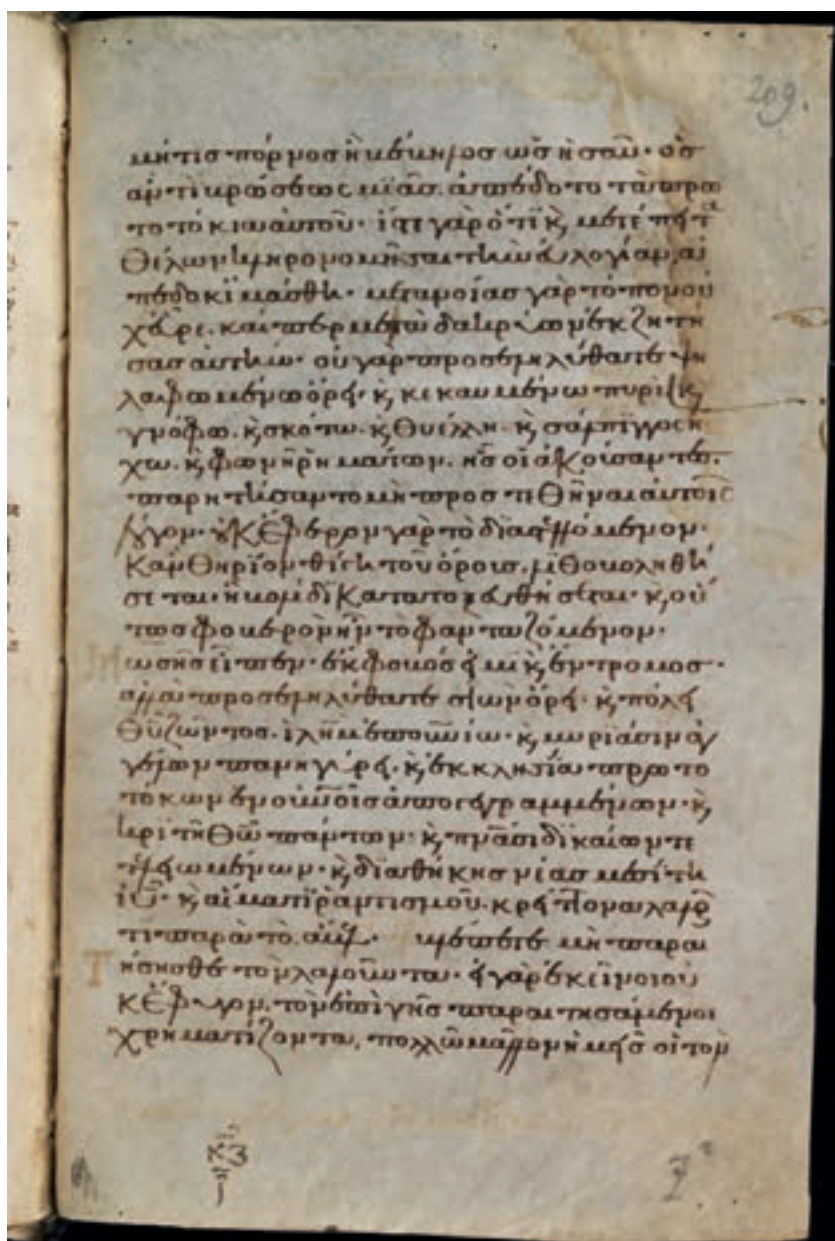 209.
μή τις πόρνος ἢ βέβηλος ὡς ησαῦ· ὃς
ἀντὶ βρώσεως μϊᾶς. ἀπέδοτο τὰ πρω
τοτόκια αὐτοῦ· ἴστε γὰρ ὅτϊ κ, μετέπειτα
θέλων κληρονομῆσαι τὴν εὐλογίαν, ἀ
πεδοκϊμάσθη· μετανοίας γὰρ τόπον οὐ
χ εὗρε. καίπερ μετὰ δακρύων ἐκζητή
σας αὐτήν· οὐ γὰρ προσεληλύθατε ψη
λαφωμένω ὄρει· κ, κεκαυμένω πυρὶ κ,
γνόφω. κ, σκότω. κ, θυέλλη. κ, σάλπιγγος ἤ
χω. κ, φωνῆ ῥημάτων. ἧς οἱ ἀκούσαντες.
παρητήσαντο μὴ προστιθῆναι αὐτοῖς
λόγον· οὐκ ἔφερον γὰρ τὸ δϊαστελλόμενον·
Κἂν θηρΐον θίγη τοῦ ὄρους. λϊθοβοληθή
σεται. ἢ βολίδϊ κατατοξευθήσεται· κ, οὕ
τως φοβερὸν ἦν τὸ φανταζόμενον·
Μωσῆς εἶπεν· ἔκφοβός εἰμι κ, ἔντρομος·
ἀλλὰ προσεληλύθατε σϊὼν ὄρει· κ, πόλει
θῦ ζῶντος. ἱλὴμ ἐπουνίω· κ, μυριάσιν ἀγ
γέλων πανηγύρει· κ, ἐκκλησία πρωτο
τόκων ἐν οὐνοῖς ἀπογεγραμμένων· κ,
κριτῆ θῶ πάντων· κ, πνασι δϊκαίων τε
τελειωμένων· κ, δϊαθήκης νέας μεσίτη
ιῦ· κ, αἵματι ῥαντισμοῦ. κρείττονα λαλοῦν
τι παρὰ τὸ ἄβελ· βλέπετε μὴ παραι
Τήσησθε τὸν λαλοῦντα· εἰ γὰρ ἐκεῖνοι οὐ
κ ἔφυγον. τὸν ἐπὶ γῆς παραιτησάμενοι
χρηματίζοντα, πολλῶ μᾶλλον ἡμεῖς οἱ τὸν
κζ